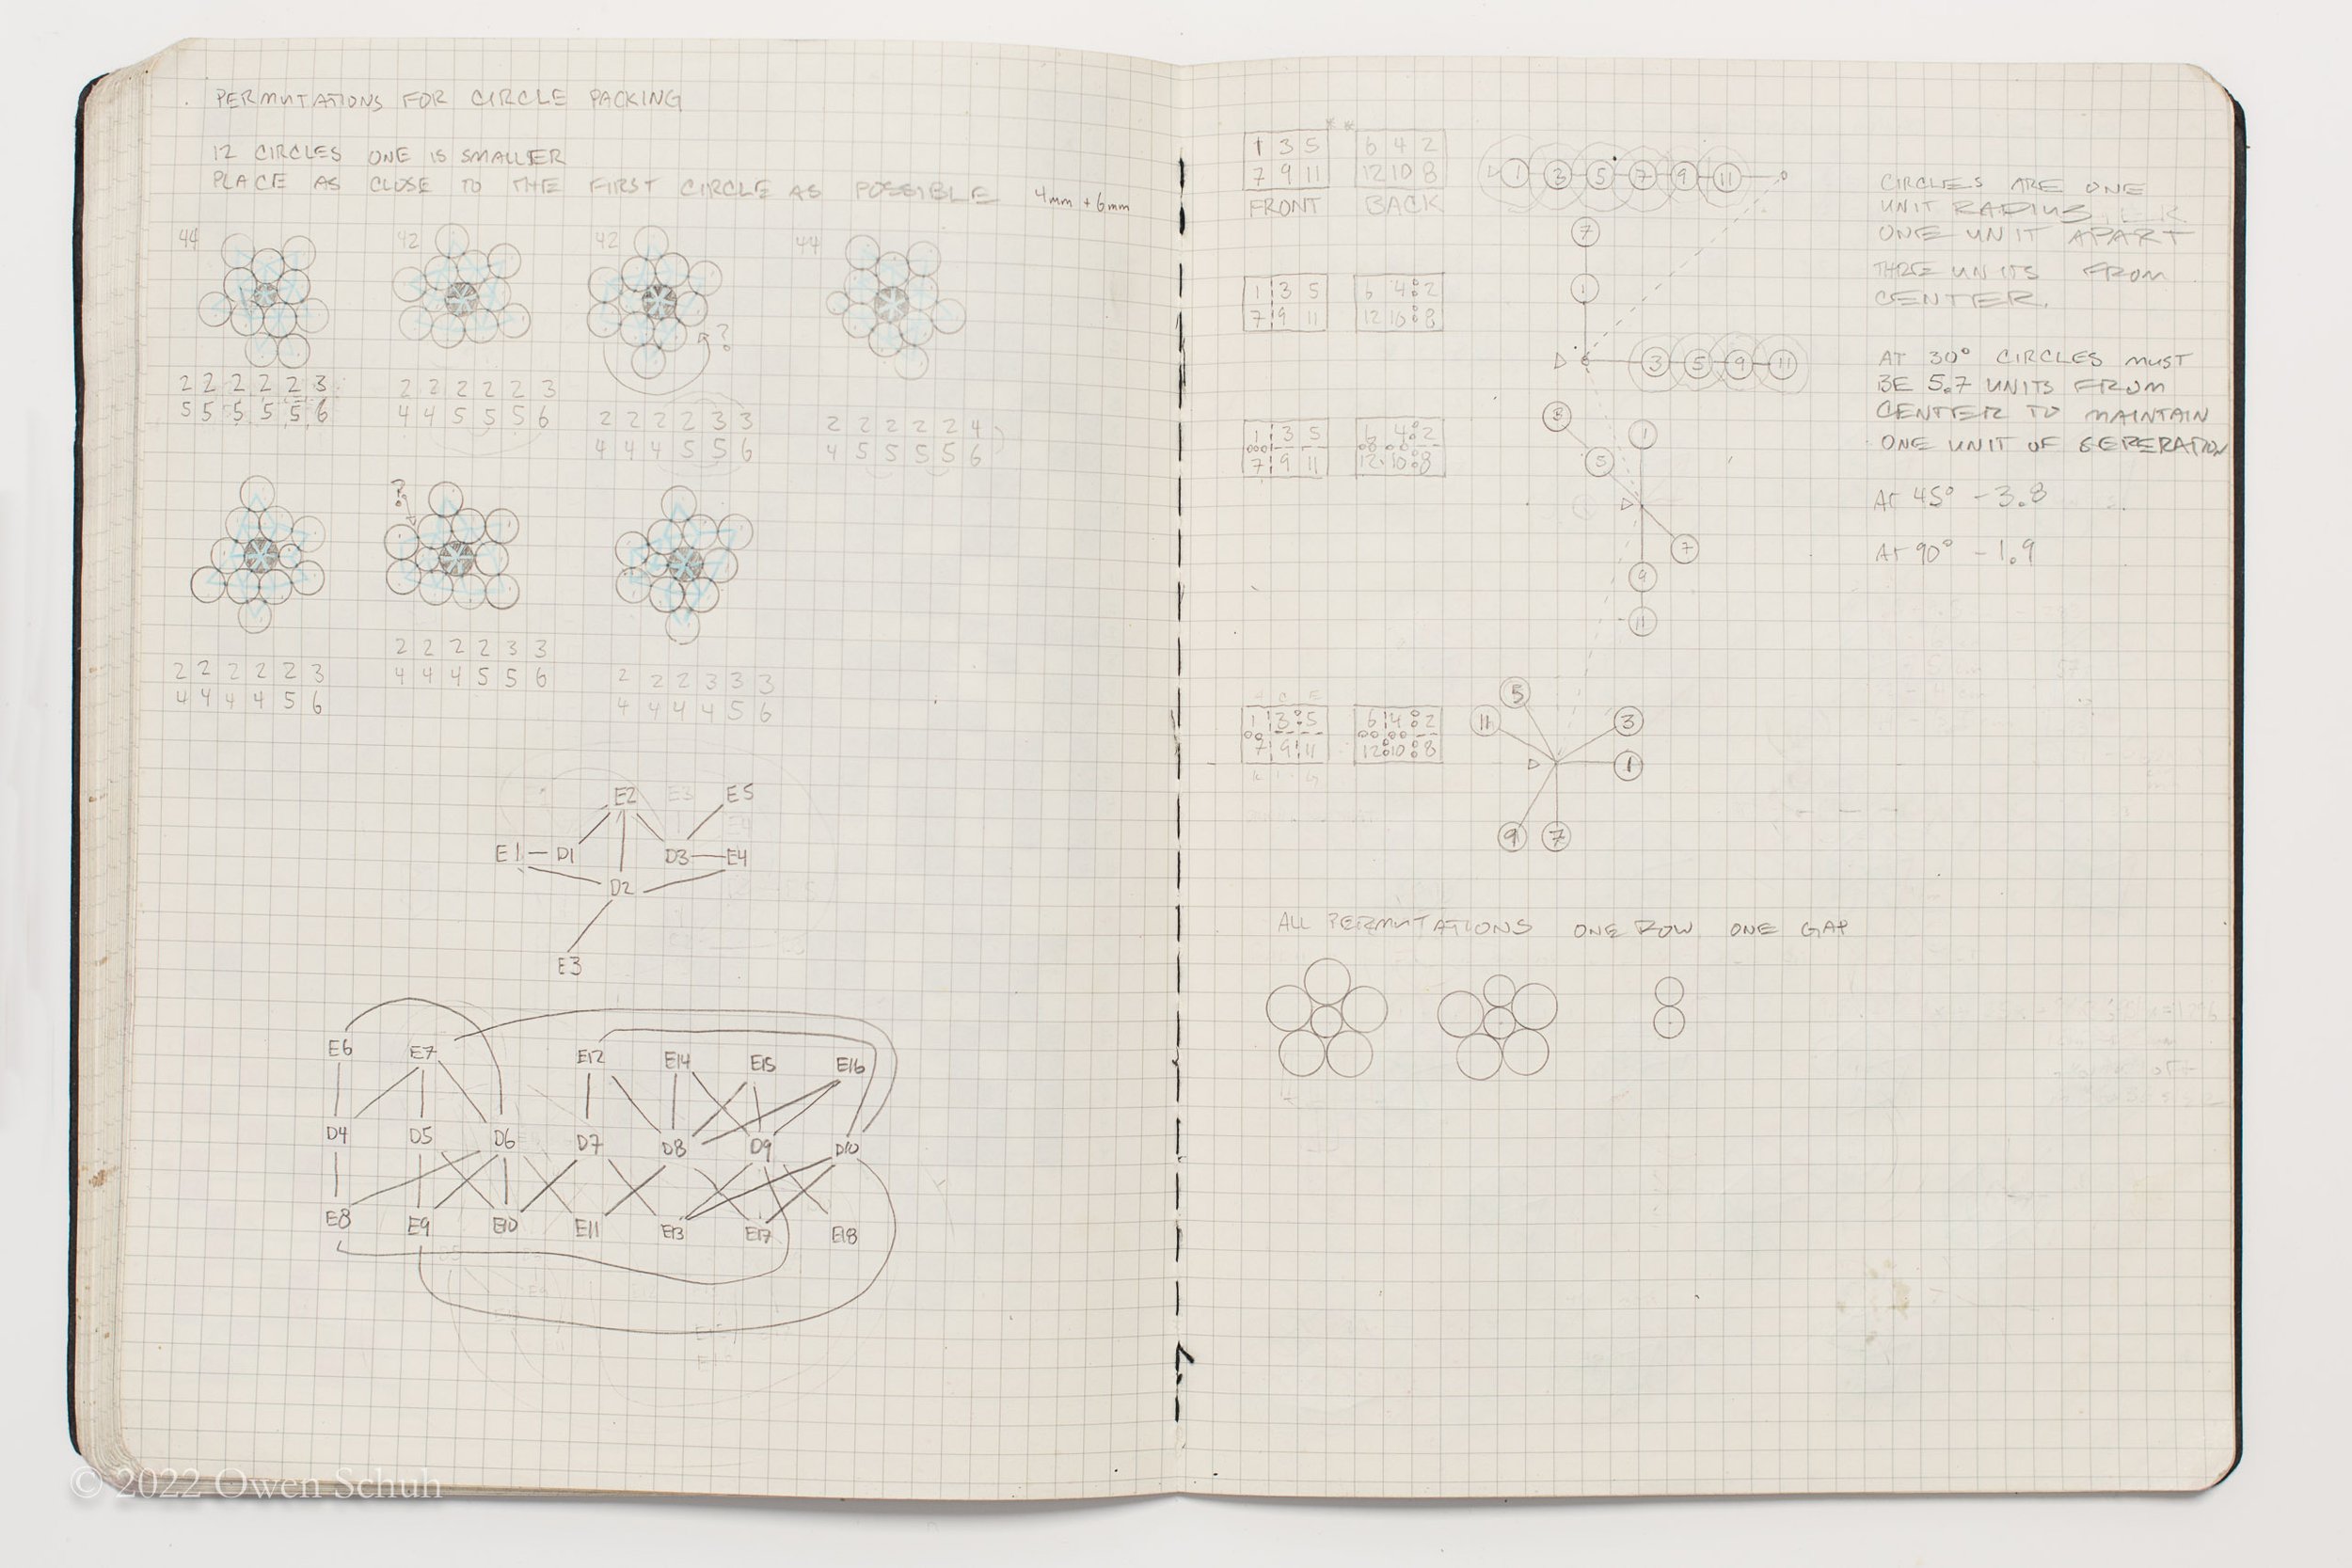 PERMUTATIONS FOR CIRCLE PACKING
12 CIRCLES ONE IS SMALLER
PLACE AS CLOSE TO THE FIRST CIRCLE AS POSSIBLE 4mm + 6mm
44 42 42 44
2 2 2 2 2 3
5 5 5 5 5 6
2 2 2 2 2 3
4 4 5 5 5 6
?
2 2 2 2 3 3
4 4 4 5 5 6
2 2 2 2 2 4
4 5 5 5 5 6
2 2 2 2 2 3
4 4 4 4 5 6
?
2 2 2 2 3 3
4 4 4 5 5 6
2 2 2 3 3 3
4 4 4 4 5 6
E2 E3 E5
E4
E1 D1 D3 E4
D2
E3
E6 E7 E12 E14 E15 E16
D4 D5 D6 D7 D8 D9 D10
E8 E9 E10 E11 E13 E17 E18
1 3 5 6 4 2
7 9 11 12 10 8
FRONT BACK
1 3 5 7 9 11
7
1
3 5 9 11
1 3 5 6 4 2
7 9 11 12 10 8
1 3 5 6 4 2
7 9 11 12 10 8
3 1
5
7
9
11
1 3 5 6 4 2
7 9 11 12 10 8
5
11 3
1
9 7
CIRCLES ARE ONE
UNIT RADIUS
ONE UNIT APART
THREE UNITS FROM
CENTER.
AT 30° CIRCLES MUST
BE 5.7 UNITS FROM
CENTER TO MAINTAIN
ONE UNIT OF SEPERATION
AT 45° - 3.8
AT 90° - 1.9
ALL PERMUTATIONS ONE ROW ONE GAP
© 2022 Owen Schuh